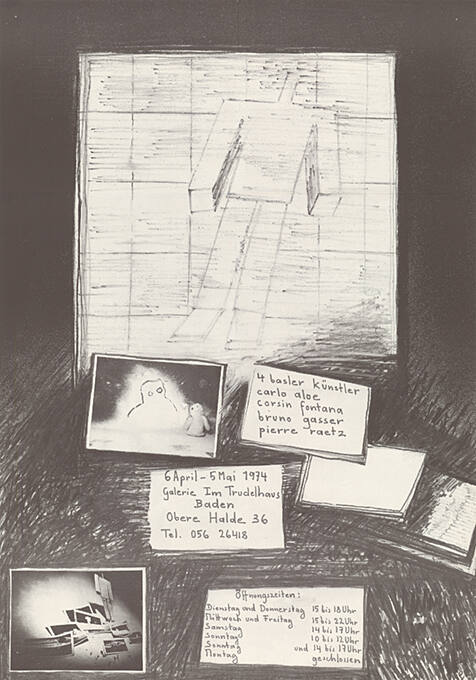 4 basler künstler
carlo aloe
corsin fontana
bruno gasser
pierre raetz
6 April – 5 Mai 1974
Galerie Im Trudelhaus
Baden
Obere Halde 36
Tel. 056 26418
Öffnungszeiten:
Dienstag und Donnerstag 15 bis 18 Uhr
Mittwoch und Freitag 15 bis 22 Uhr
Samstag 14 bis 17 Uhr
Sonntag 10 bis 12 Uhr
Sonntag und 14 bis 17 Uhr
Montag geschlossen